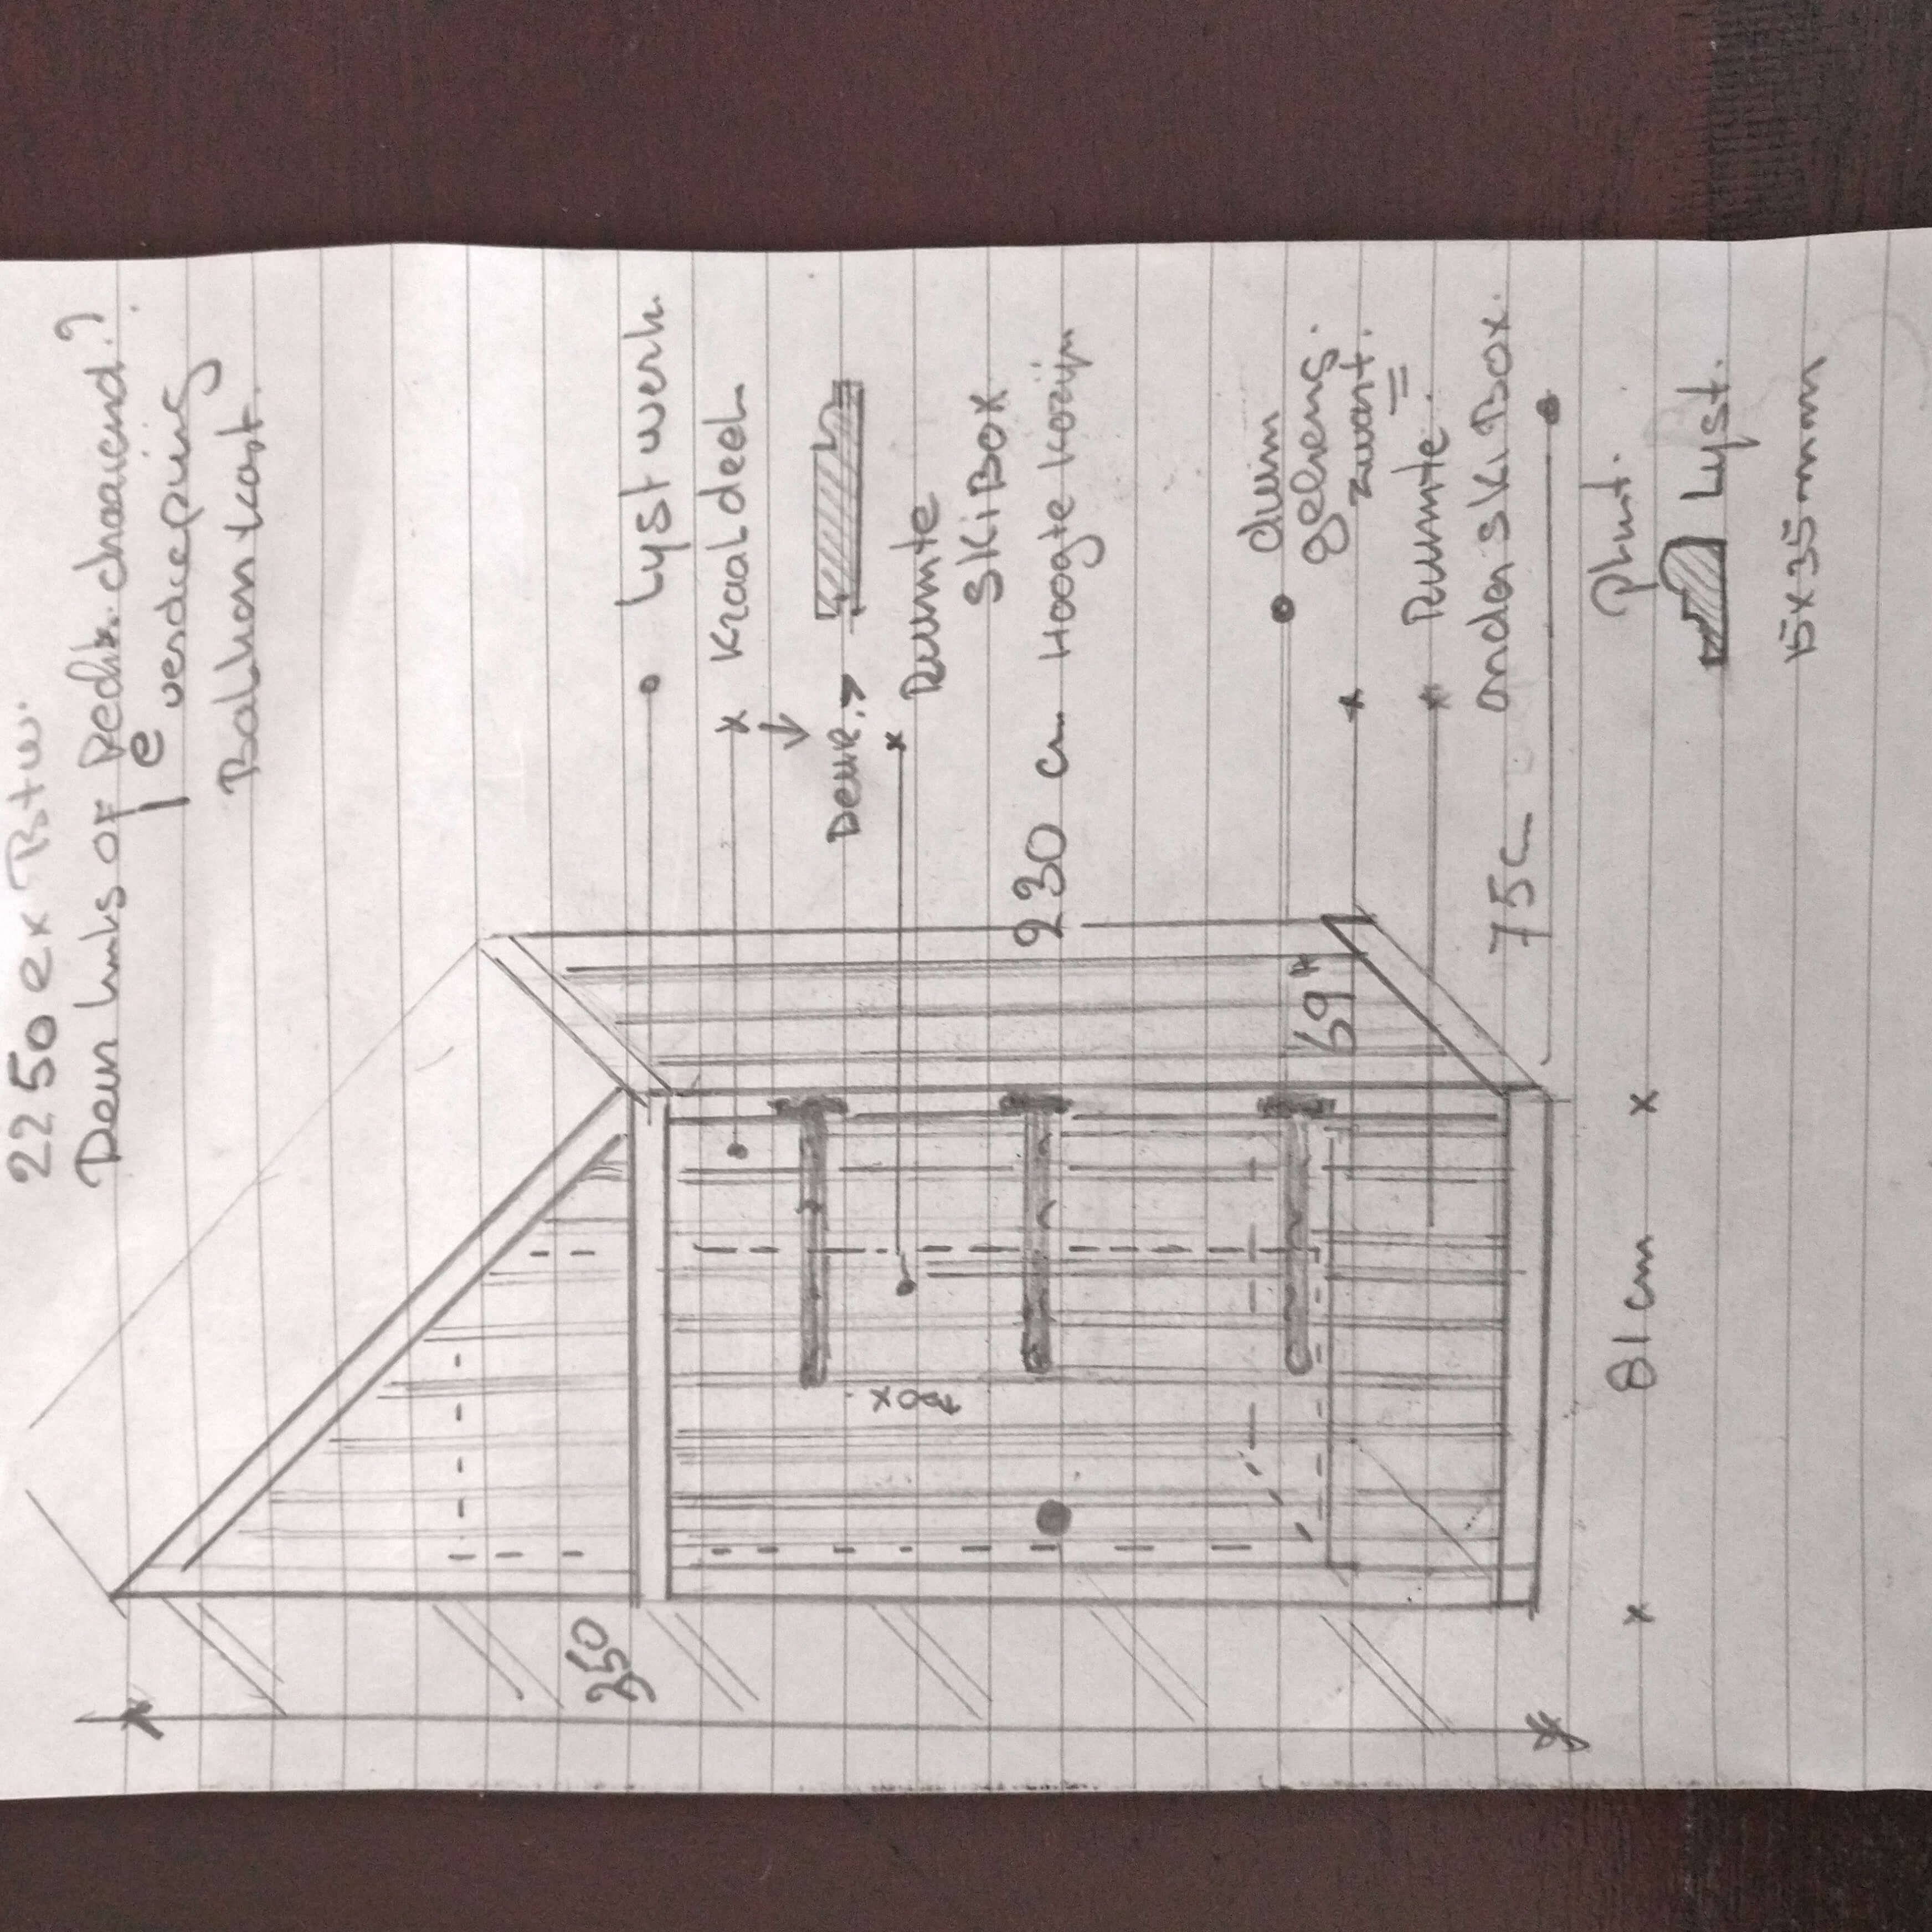 2250 ex Btw.
Deur links of Rechts draaiend?
1e verdieping
Balkon kast.
Lyst werk
Kraal deel
Deur
Ruimte
SKiBOX
230 cm Hoogte Kozijn
duim
geheng.
zwart.
Ruimte.
onder SKiBox.
69
75 cm
Plint.
Lyst.
15x35mm
81 cm
250
BOX